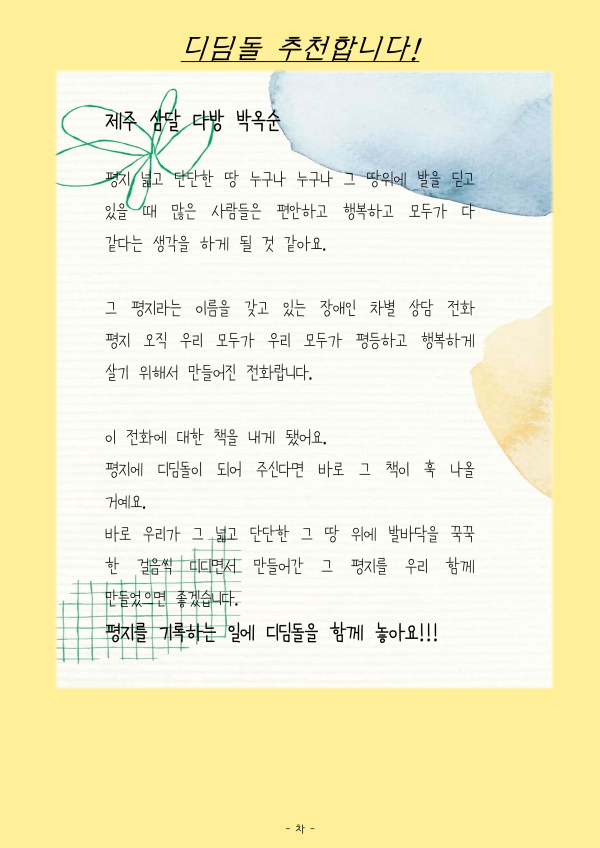 디딤돌 추천합니다!
제주 삼달 다방 박옥순
평지 넓고 단단한 땅 누구나 누구나 그 땅위에 발을 딛고
있을 때 많은 사람들은 편안하고 행복하고 모두가 다
같다는 생각을 하게 될 것 같아요.
그 평지라는 이름을 갖고 있는 장애인 차별 상담 전화
평지 오직 우리 모두가 우리 모두가 평등하고 행복하게
살기 위해서 만들어진 전화랍니다.
이 전화에 대한 책을 내게 됐어요.
평지에 디딤돌이 되어 주신다면 바로 그 책이 훅 나올
거예요.
바로 우리가 그 넓고 단단한 그 땅 위에 발바닥을 꾹꾹
한 걸음씩 디디면서 만들어간 그 평지를 우리 함께
만들었으면 좋겠습니다.
평지를 기록하는 일에 디딤돌을 함께 놓아요!!!
- 차 -